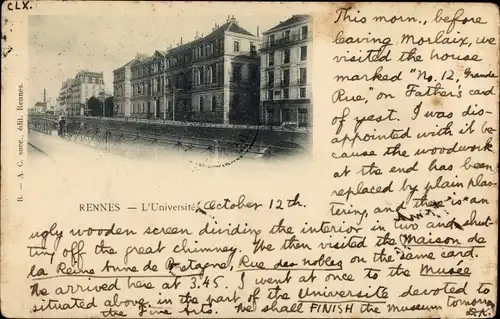 CLX.
This morn., before
leaving Morlaix, we
visited the house
marked "No. 12, Grande
Rue," on Father's card
of yest. I was dis-
appointed with it be
cause the woodwork
at the end has been
replaced by plain plas
tering, and there is an
B. — A. G. succ., édit. Rennes.
RENNES. — L'Université
October 12th.
ugly wooden screen dividing the interior in two and shut-
ting off the great chimney. We then visited the Maison de
la Reine Anne de Bretagne, Rue des Nobles on the same card.
We arrived here at 3.45. I went at once to the Musée
situated above, in the part of the Université devoted to
the Fine Arts. We shall FINISH the museum tomorrow